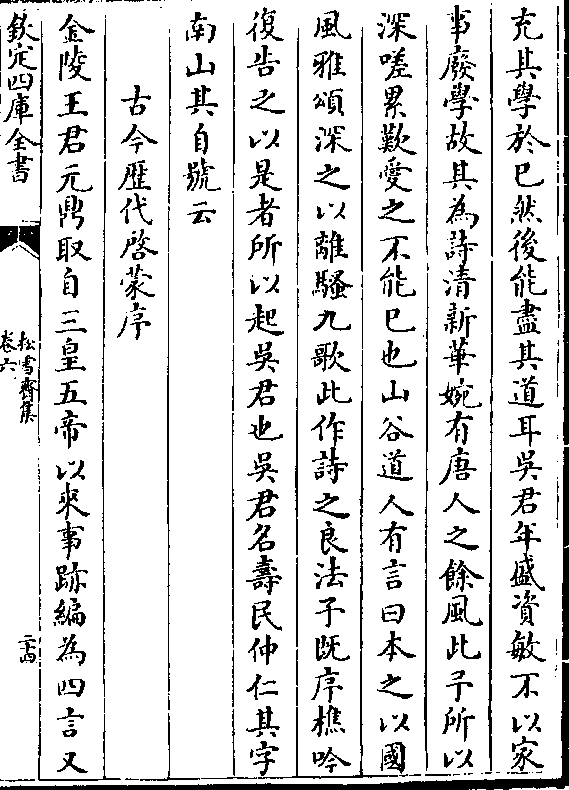 充其學於己然後能盡其道耳吳君年盛資敏不以家
事廢學故其為詩清新華婉有唐人之餘風此予所以
深嗟累歎愛之不能已也山谷道人有言曰本之以國
風雅頌深之以離騷九歌此作詩之良法予既序樵吟
復告之以是者所以起吳君也吳君名壽民仲仁其字
南山其自號云
古今歷代啓蒙序
金陵王君元鼎取自三皇五帝以來事跡編為四言又
欽定四庫全書
松雪齋集
卷六
二十四